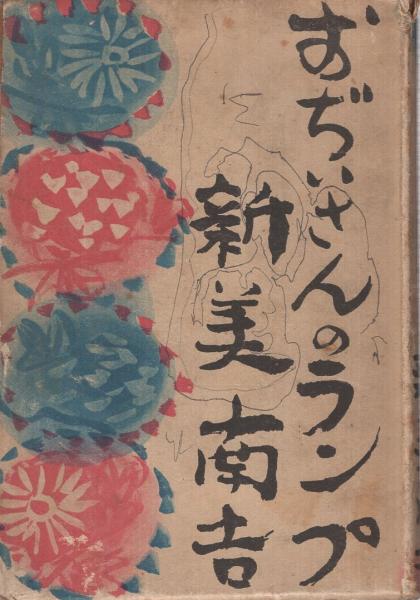 おぢいさんのランプ
新美南吉